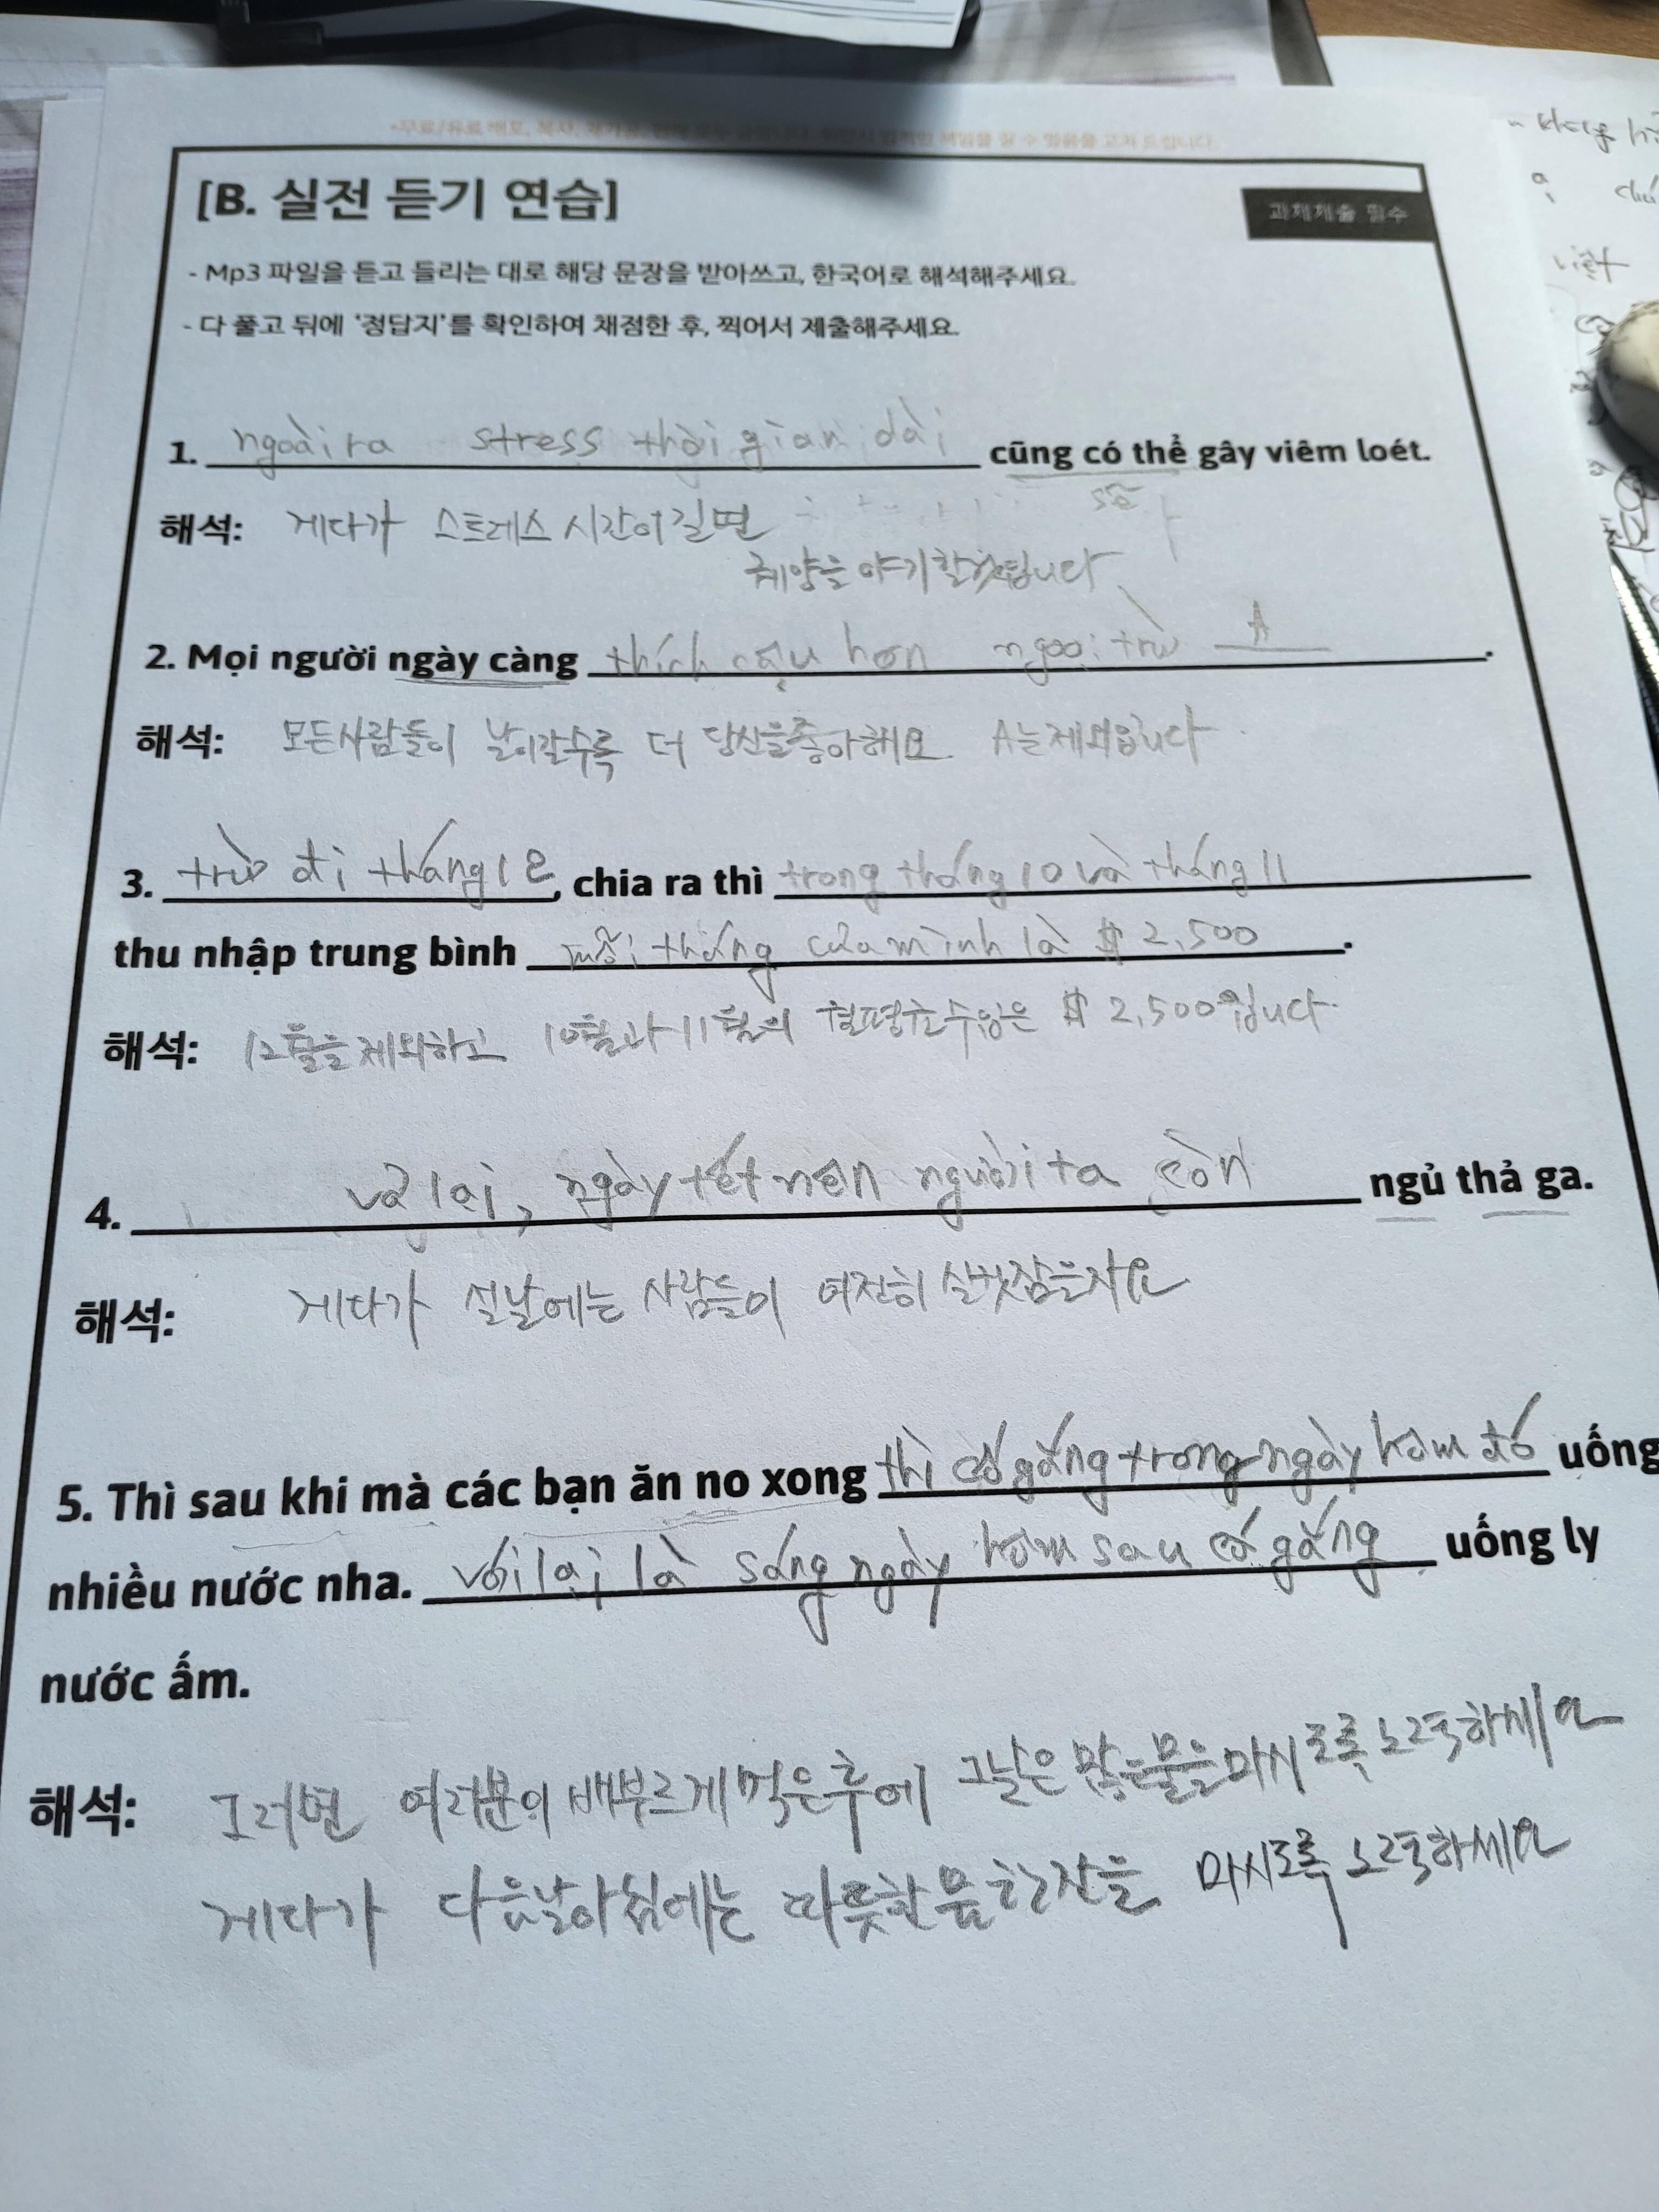 [B. 실전 듣기 연습]
과제제출 필수
- Mp3 파일을 듣고 들리는 대로 해당 문장을 받아쓰고, 한국어로 해석해주세요.
- 다 풀고 뒤에 '정답지'를 확인하여 채점한 후, 찍어서 제출해주세요.
1. ngoài ra stress thời gian dài cũng có thể gây viêm loét.
해석: 게다가 스트레스 시간이 길면
궤양을 야기할 수 있습니다
2. Mọi người ngày càng thích cậu hơn ngoại trừ A.
해석: 모든사람들이 날이갈수록 더 당신을좋아해요 A는제외입니다
3. trừ đi tháng 12, chia ra thì trong tháng 10 và tháng 11
thu nhập trung bình mỗi tháng của mình là $ 2,500.
해석: 12월을 제외하고 10월과 11월의 월평균수입은 $ 2,500입니다
4. vả lại, ngày tết nên người ta còn ngủ thả ga.
해석: 게다가 설날에는 사람들이 여전히 실컷잠을자요
5. Thì sau khi mà các bạn ăn no xong thì cố gắng trong ngày hôm đó uống
nhiều nước nha. với lại là sáng ngày hôm sau cố gắng uống ly
nước ấm.
해석: 그러면 여러분이 배부르게먹은후에 그날은 많은물을마시도록 노력하세요
게다가 다음날아침에는 따뜻한물한잔을 마시도록 노력하세요